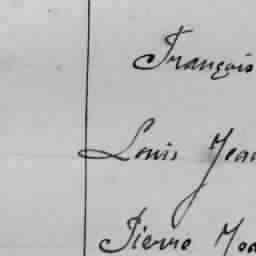 François
Louis Jean
Pierre